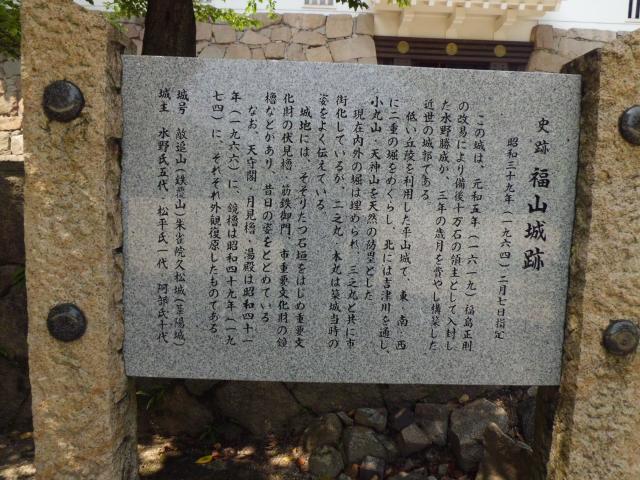 史跡 福山城跡
昭和三十九年(一九六四)二月七日指定
この城は、元和五年(一六一九)福島正則
の改易により備後十万石の領主として入封し
た水野勝成が、三年の歳月を費やし構築した
近世の城郭である
低い丘陵を利用した平山城で、東、南、西
に二重の堀をめぐらし、北には吉津川を通し、
小丸山・天神山を天然の防塁とした
現在内外の堀は埋められ、三之丸と共に市
街化しているが、二之丸、本丸は築城当時の
姿をよく伝えている
城地には、そそりたつ石垣をはじめ重要文
化財の伏見櫓、筋鉄御門、市重要文化財の鐘
櫓などがあり、昔日の姿をとどめている
なお、天守閣・月見櫓、湯殿は昭和四十一
年(一九六六)に、鏡櫓は昭和四十九年(一九
七四)に、それぞれ外観復原したものである
城号 敵追山(鉄覆山)朱雀院久松城(葦陽城)
城主 水野氏五代 松平氏一代 阿部氏十代